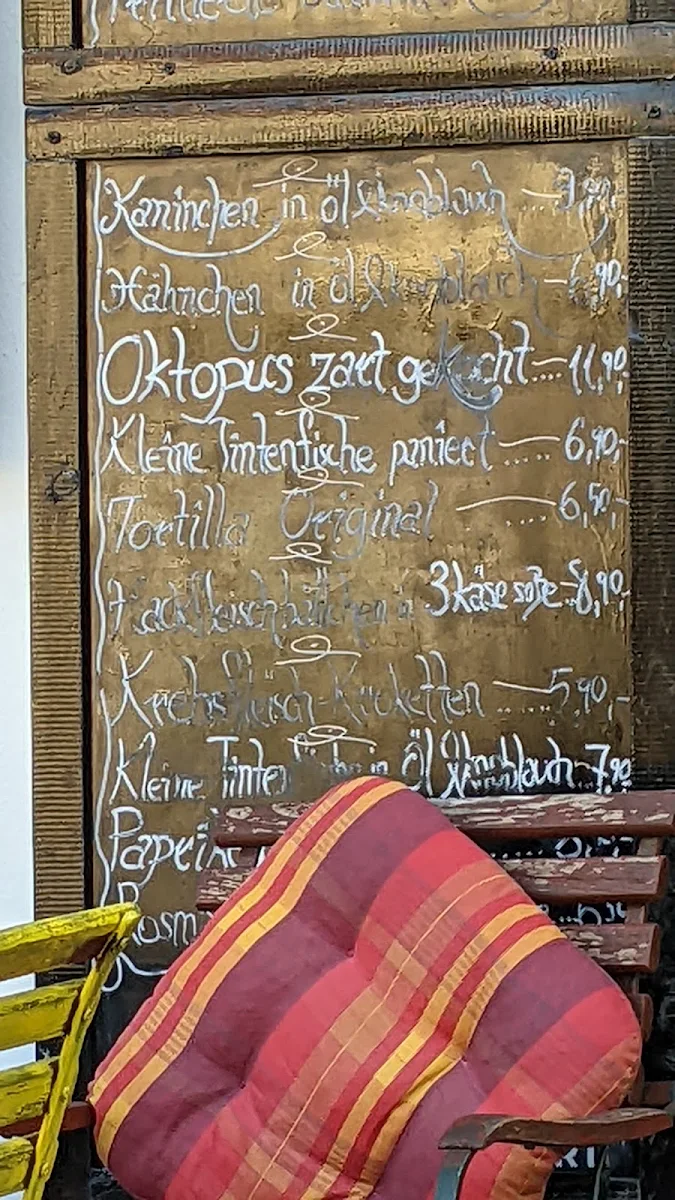 Kaninchen in öl & knoblauch ....9,90,-
Hähnchen in öl & knoblauch 6,90,-
Oktopus zart gekocht .... 11,90,
Kleine Tintenfische paniert ..... 6,90,-
Tortilla Original .... 6,50,-
Hackfleischbällchen in 3 käse soße 8,90,-
Krebsfleisch-Kroketten ..... 5,90,-
Kleine Tinte in Öl & Knoblauch 7,90